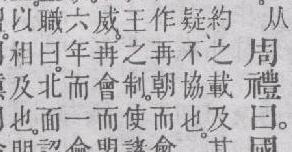 从周禮曰。國
約之載及其
疑不協也。
作再朝而會
王之制。使諸
威再會而
六年而一會
職曰。北面
以相及也。